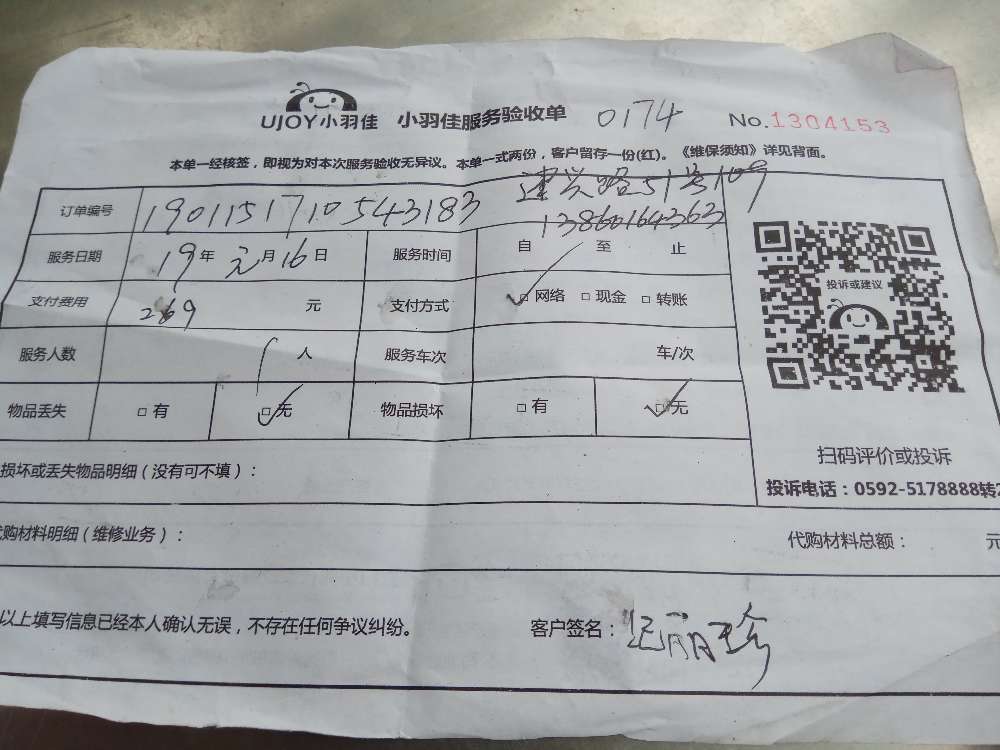 UJOY小羽佳 小羽佳服务验收单 0174 No.1304153
本单一经核签，即视为对本次服务验收无异议。本单一式两份，客户留存一份(红)。《维保须知》详见背面。
建兴路51号109
订单编号 1901151710543183 13860164363
服务日期 19年元月16日 服务时间 自 至 止
支付费用 269 元 支付方式 ✓□网络 □现金 □转账
投诉或建议
服务人数 1人 服务车次 车/次
物品丢失 □有 ☑无 物品损坏 □有 ☑无
扫码评价或投诉
损坏或丢失物品明细（没有可不填）：
投诉电话：0592-5178888转2
代购材料明细（维修业务）： 代购材料总额： 元
以上填写信息已经本人确认无误，不存在任何争议纠纷。 客户签名： 丽珍